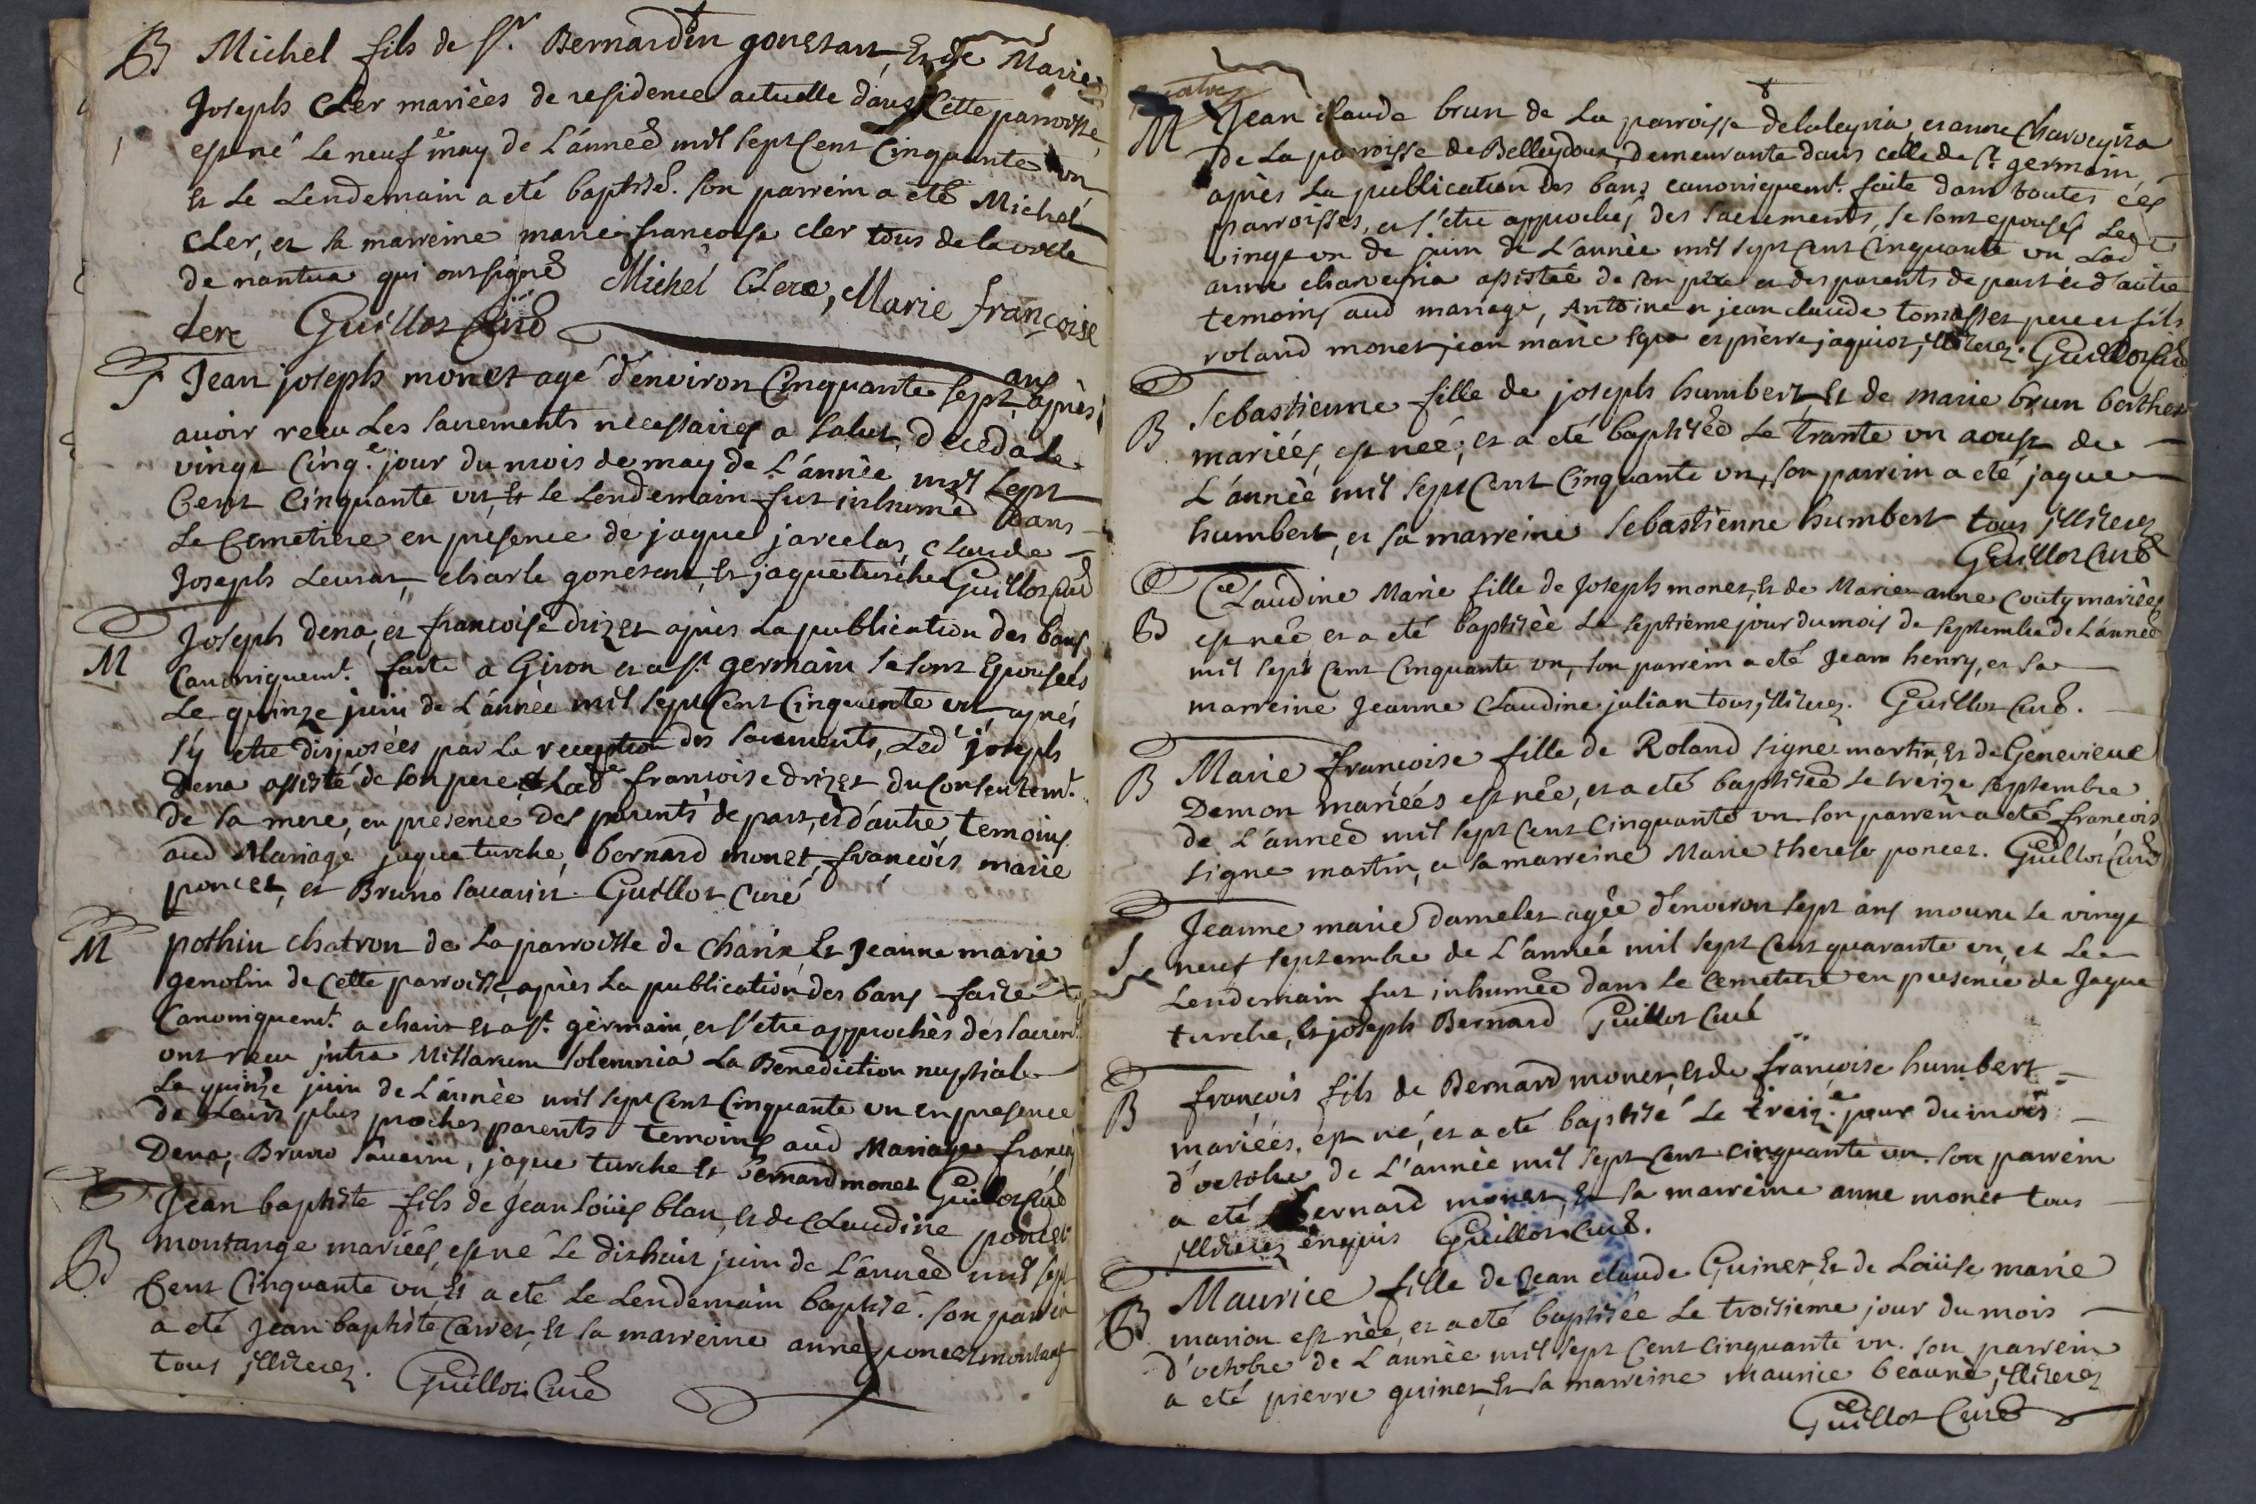 B Michel fils de Sr. Bernardin gonetant, et de Marie
Joseph Cler mariées de residence actuelle dans Cette parroisse,
est né le neuf may de L'année mil sept Cent Cinquante un
et Le Lendemain a eté baptisé. Son parrein a eté Michel
Cler, et sa marreine marie francoise cler tous de la ville
de nantua qui ont signé Michel Clerc, Marie françoise
clerc Guillot Curé
S Jean joseph monet agé d'environ Cinquante sept ans après
avoir recu Les sacrements necessaires a salut, deceda le
vingt Cinq.e jour du mois de may de L'année mil sept
Cent Cinquante un, et le Lendemain fut inhumé dans
Le Cemetiere en présence de jaque jarcelat, Claude
Joseph Leurat, charle gonetant, et jaque turche Guillot Curé
M Joseph dena, et francoise drizet après La publication des bans
Canoniquemt. faite a Giron et a St. germain se sont Epousées
Le quinze juin de L'année mil sept Cent Cinquante un après
s'y etre disposées par la reception des sacrements, Led.t joseph
dena assisté de son pere, et Lad.e francoise drizet du Consentemt.
de sa mere, en présence des parents de part, et d'autre temoins
aud Mariage jaque turche, bernard monet, francois marie
poncet, et Bruno Savarin. Guillot Curé
M pothin chatron de La parroisse de Charix et Jeanne marie
genolin de Cette parroisse, après La publication des bans faite
Canoniquemt. a charix et a St. gèrmain, et s'etre approchès des sacremt.
ont recu jntra Missarum solemnia La Benediction nuptiale
Le quinze juin de L'année mil sept Cent Cinquante un en presence
de Leurs plus proches parents temoins aud Mariage francois
Dena, Bruno Saverin, jaque turche et bernard monet Guillot Curé
B Jean baptiste fils de Jean Loüis blan, et de Claudine poncet
montange mariées, est né Le dixhuit juin de L'année mil sept
Cent Cinquante un, et a eté Le Lendemain baptisé. Son parrein
a eté Jean baptiste Carret, et sa marreine anne poncet montange
tous jlliterez. Guillot Curé
M Jean claude brun de La parroisse delaleyria, et anne Charveyria
de La parroisse de Belleydoux, demeurante dans celle de St. germain,
après La publication des bans canoniquemt. faite dans toutes ces
parroisses, et s'etre approchés des sacrements, se sont epousés Le
vingt un de juin de L'année mil sept Cent Cinquante un Lad.e
anne charveyria assistée de son père et des parents de part et d'autre
temoins aud mariage, Antoine et jean claude tomasset pere et fils
roland monet, jean marie et pierre jaquiot, jlliterez. Guillot Curé
B Sebastienne fille de joseph humbert, et de marie brun berthet
mariées, est née, et a eté baptisée Le trante un aoust de
L'année mil sept Cent Cinquante un, son parrein a eté jaque
humbert, et sa marreine Sebastienne humbert tous jlliterez
Guillot Curé
B Claudine Marie fille de Joseph monet, et de Marie anne Couty mariées
est née et a eté baptisée Le septieme jour du mois de septembre de L'année
mil sept Cent Cinquante un, son parrein a eté Jean henry, et sa
marreine Jeanne Claudine julian tous jlliterez. Guillot Curé.
B Marie francoise fille de Roland signe martin, et de Genevieve
Demon mariées est née, et a eté baptisée Le treize septembre
de L'année mil sept Cent Cinquante un son parrein a eté francois
signe martin, et sa marreine Marie therese poncet. Guillot Curé
S Jeanne marie damelet agée d'environ sept ans mourut le vingt
neuf septembre de L'année mil sept Cent quarante un, et Le
Lendemain fut inhumée dans Le Cemetiere en presence de Jaque
turche, et joseph Bernard Guillot Curé
B françois fils de Bernard monet, et de françoise humbert
mariées, est né, et a eté baptisé Le treiz.e jour du mois
d'octobre de L'année mil sept Cent cinquante un. son parrein
a eté Bernard monet, et sa marreine anne monet tous
jlliterez enquis Guillot Curé.
B Maurice fille de Jean claude Guinet, et de Loüise marie
marion est née, et a eté baptisée Le troisieme jour du mois
d'octobre de L'année mil sept Cent Cinquante un. son parrein
a eté pierre guinet, et sa marreine maurice beaune, jlliterez
Guillot Curé